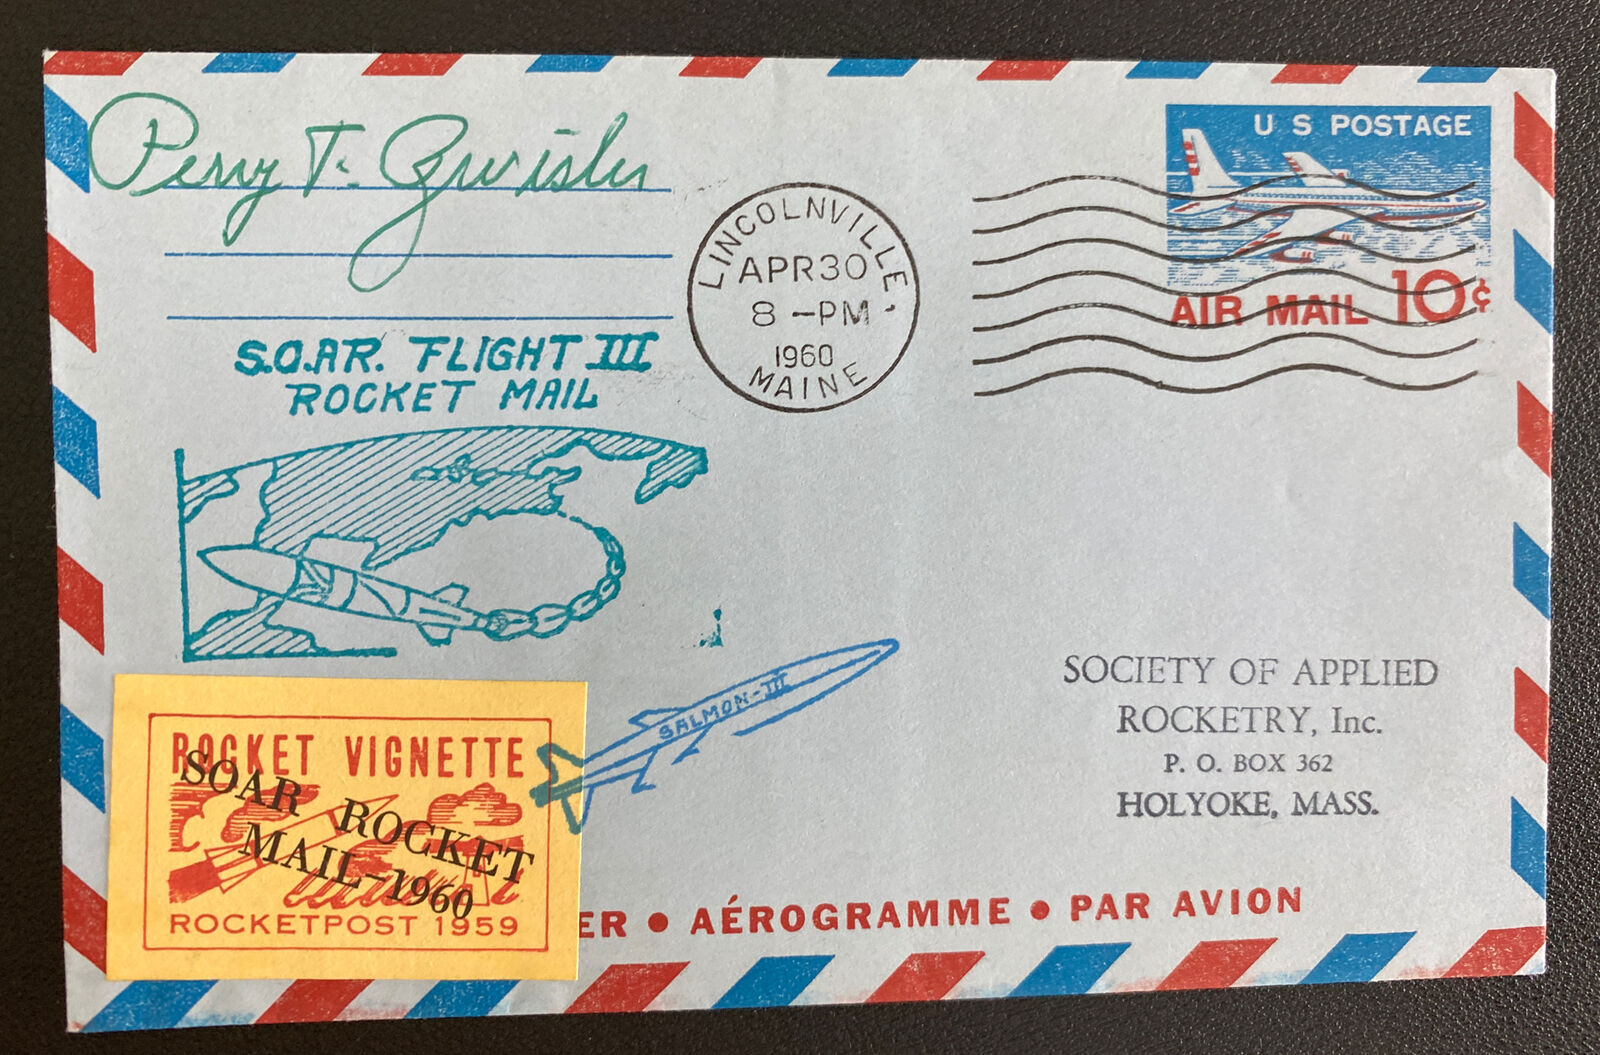 Perry T. Zwisler
U S POSTAGE
AIR MAIL 10¢
LINCOLNVILLE,
APR 30
8 -PM
1960
MAINE
S.O.A.R. FLIGHT III
ROCKET MAIL
SALMON-III
SOCIETY OF APPLIED
ROCKETRY, Inc.
P. O. BOX 362
HOLYOKE, MASS.
ROCKET VIGNETTE
SOAR ROCKET
MAIL-1960
ROCKETPOST 1959
ER • AÉROGRAMME • PAR AVION